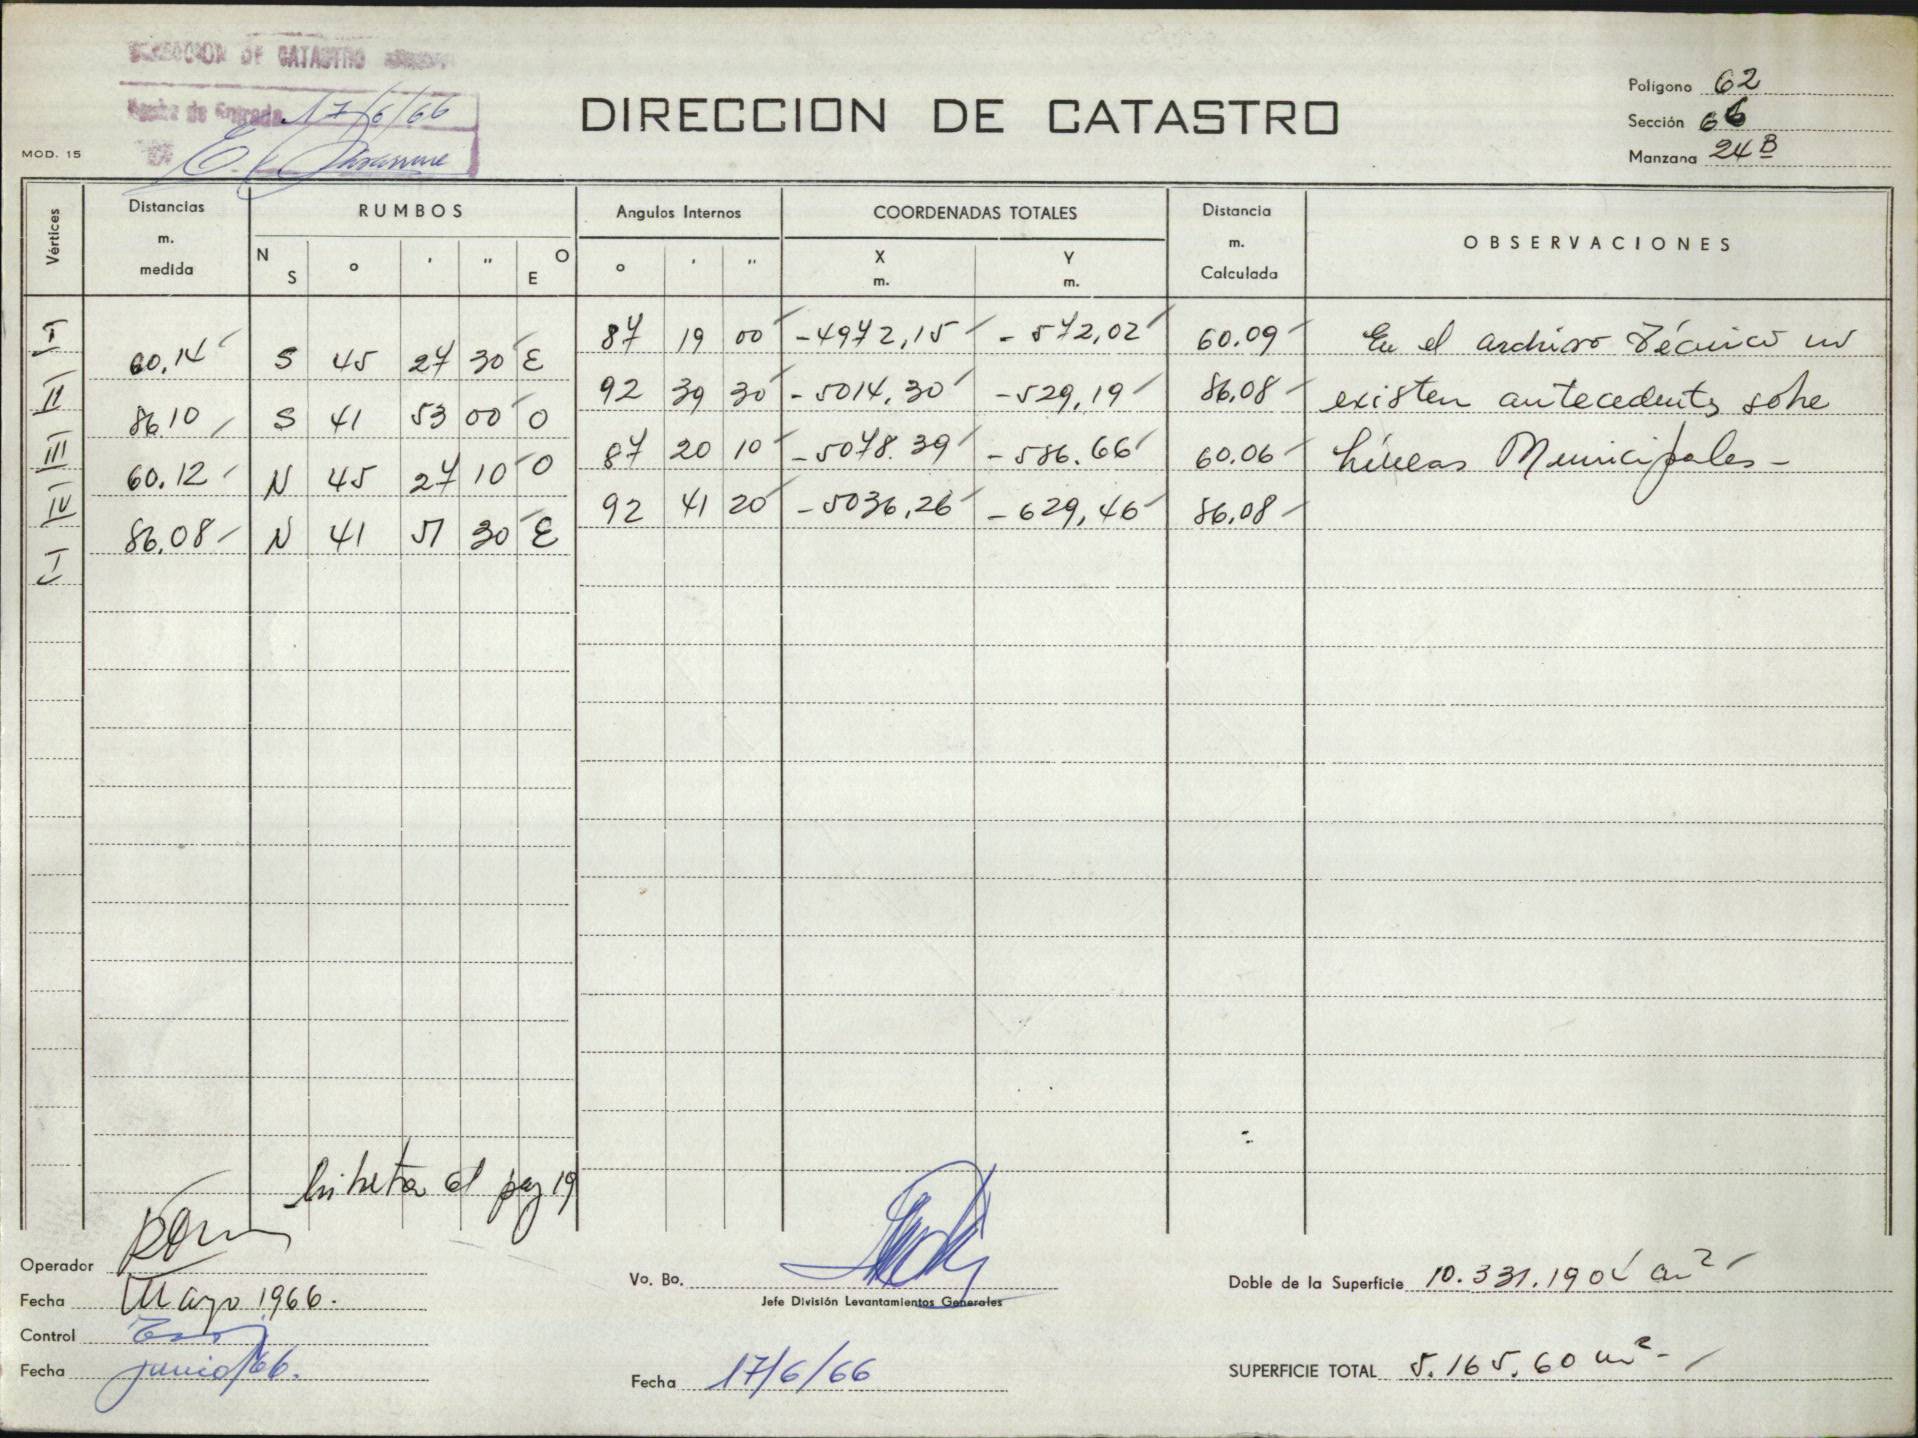 DIRECCION DE CATASTRO
Fecha de Entrada 17/6/66
MOD. 15
DIRECCION DE CATASTRO
Polígono 62
Sección 66
Manzana 24 B
Vértices
Distancias m. medida
RUMBOS
N S ° ' " O E
Angulos Internos
° ' "
COORDENADAS TOTALES
X m. Y m.
Distancia m. Calculada
OBSERVACIONES
I 87 19 00 -4972,15 -572,02 60.09 En el archivo Técnico no
60,14 S 45 27 30 E
II 92 39 30 -5014,30 -529,19 86,08 existen antecedentes sobre
86,10 S 41 53 00 O
III 87 20 10 -5078.39 -586.66 60.06 Líneas Municipales-
60,12 N 45 27 10 O
IV 92 41 20 -5036,26 -629,46 86,08
86,08 N 41 51 30 E
I
libreta al pag 19
Operador
Fecha Mayo 1966.
Control
Fecha junio/66.
Vo. Bo.
Jefe División Levantamientos Generales
Fecha 17/6/66
Doble de la Superficie 10.331.190 m²
SUPERFICIE TOTAL 5.165,60 m²-